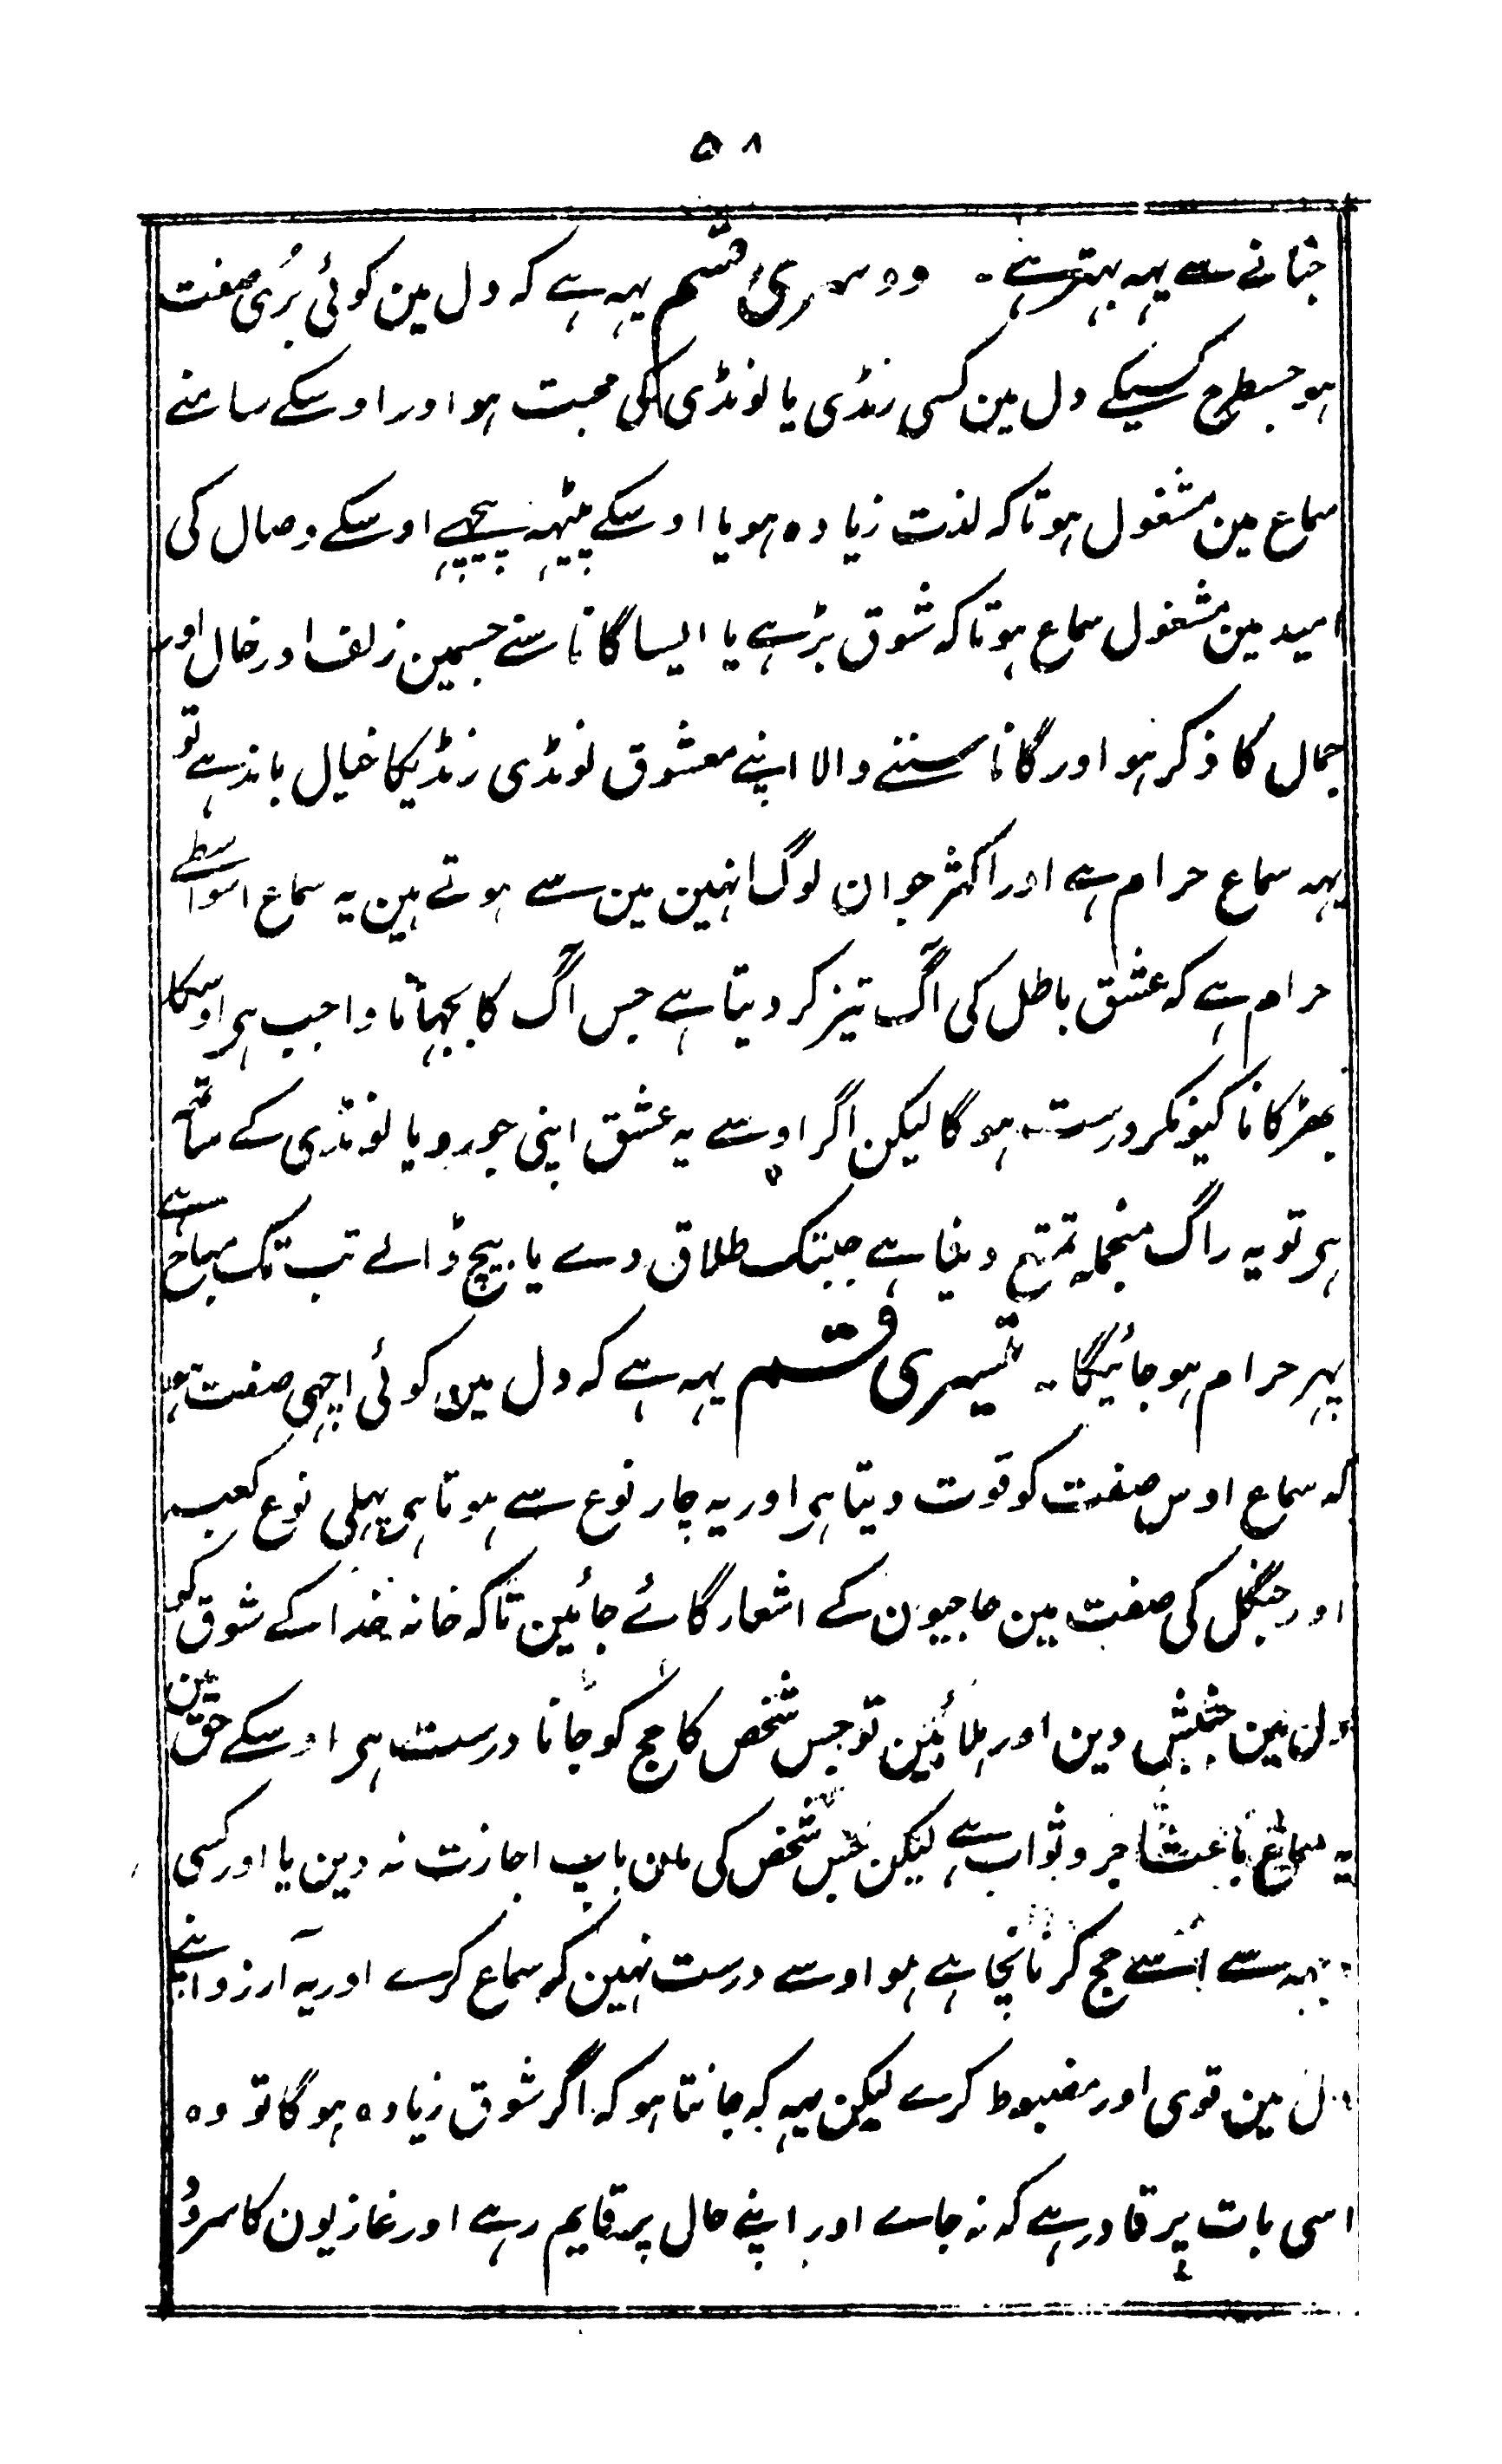 ۵۸
جتانے سے یہہ بہتر ہے۔ دوسری قسم یہہ ہے کہ دل مین کوئی بُری صفت
ہو جسطرح کسیکے دل مین کسی رنڈی یا لونڈی کی محبت ہو اور اوسکے سامنے
سماع مین مشغول ہو تاکہ لذت زیادہ ہو یا اوسکے پیٹہہ پیچہے اوسکے وصال کی
امید مین مشغول سماع ہو تاکہ شوق بڑہے یا ایسا گانا سنے جسمین زلف اور خال اور
جمال کا ذکر ہو اور گانا سننے والا اپنے معشوق لونڈی رنڈیکا خیال باندہے تو
یہہ سماع حرام ہے اور اکثر جوان لوگ انہین مین سے ہوتے ہین یہ سماع اسواسطے
حرام ہے کہ عشق باطل کی آگ تیز کر دیتا ہے جس آگ کا بجہانا واجب ہی اوسکا
بھڑکانا کیونکر درست ہوگا لیکن اگر اوسے یہ عشق اپنی جورو یا لونڈی کے ساتھہ
ہی تو یہ راگ منجملہ تمتع دنیا ہے جبتک طلاق دے یا بیچ ڈالے تب تک مباح ہے
پہر حرام ہو جائیگا۔ تیسری قسم یہہ ہے کہ دل مین کوئی اچہی صفت ہو
کہ سماع اوس صفت کو قوت دیتا ہی اور یہ چار نوع سے ہوتا ہی پہلی نوع کعبہ
اور جنگل کی صفت مین حاجیون کے اشعار گائے جائین تاکہ خانہ خدا کے شوق کو
دل مین جنبش دین اور ہلائین تو جس شخص کا حج کو جانا درست ہی اوسکے حق مین
یہ سماع باعث اجر و ثواب ہے لیکن جس شخص کی مان باپ اجازت نہ دین یا اور کسی
وجہہ سے اُسے حج کرنا نچاہے ہو اوسے درست نہین کہ سماع کرے اور یہ آرزو اپنے
دل مین قوی اور مضبوط کرے لیکن یہہ کہ جانتا ہو کہ اگر شوق زیادہ ہوگا تو وہ
اسی بات پر قادر ہے کہ نہ جاے اور اپنے حال پر قایم رہے اور غازیون کا سرود